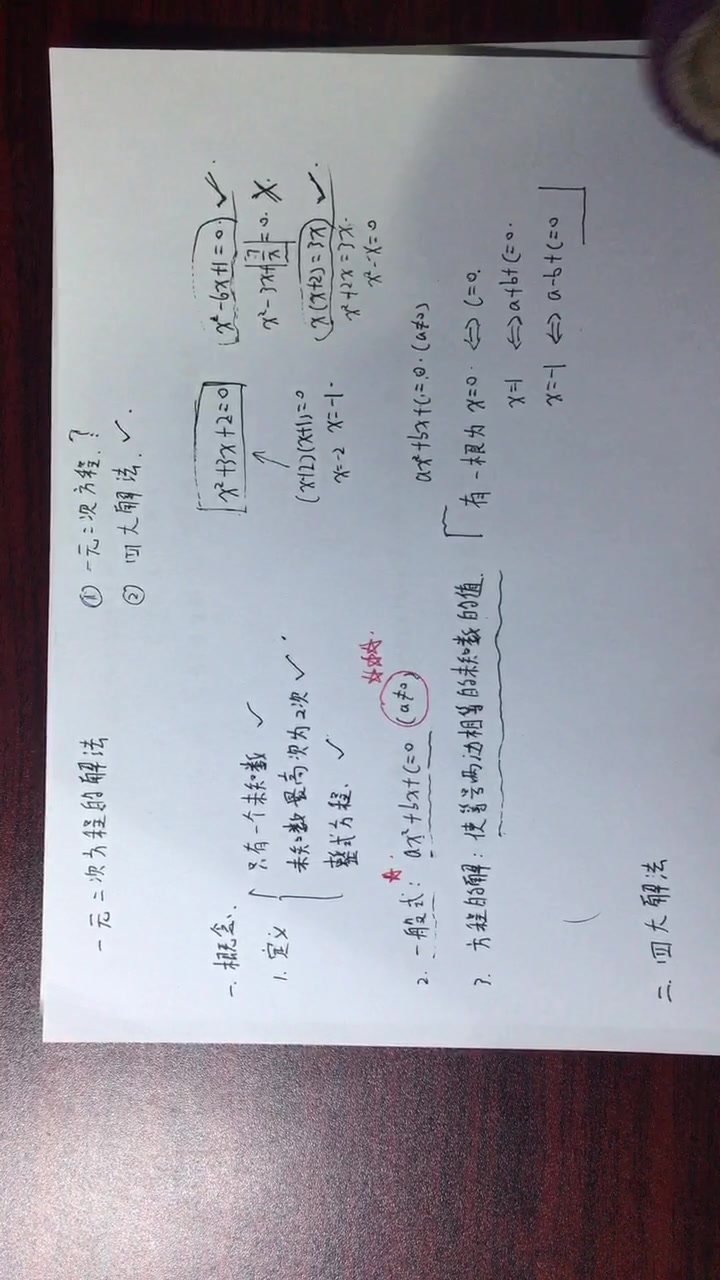 一元二次方程的解法
① 一元二次方程.?
② 四大解法. ✓.
一. 概念.
1. 定义
只有一个未知数 ✓
未知数最高次为2次 ✓
整式方程. ✓
x²+3x+2=0
(x+2)(x+1)=0
x=-2 x=-1.
x²-6x+1=0. ✓
x²-3x+=0. ✗
x(x+2)=3x ✓
x²+2x=3x.
x²-x=0
2. 一般式: ax²+bx+c=0 (a≠0) ☆☆☆
ax²+bx+c=0. (a≠0)
3. 方程的解: 使等号两边相等的未知数的值.
有一根为 x=0. ⇔ c=0.
x=1 ⇔ a+b+c=0.
x=-1 ⇔ a-b+c=0
二. 四大解法